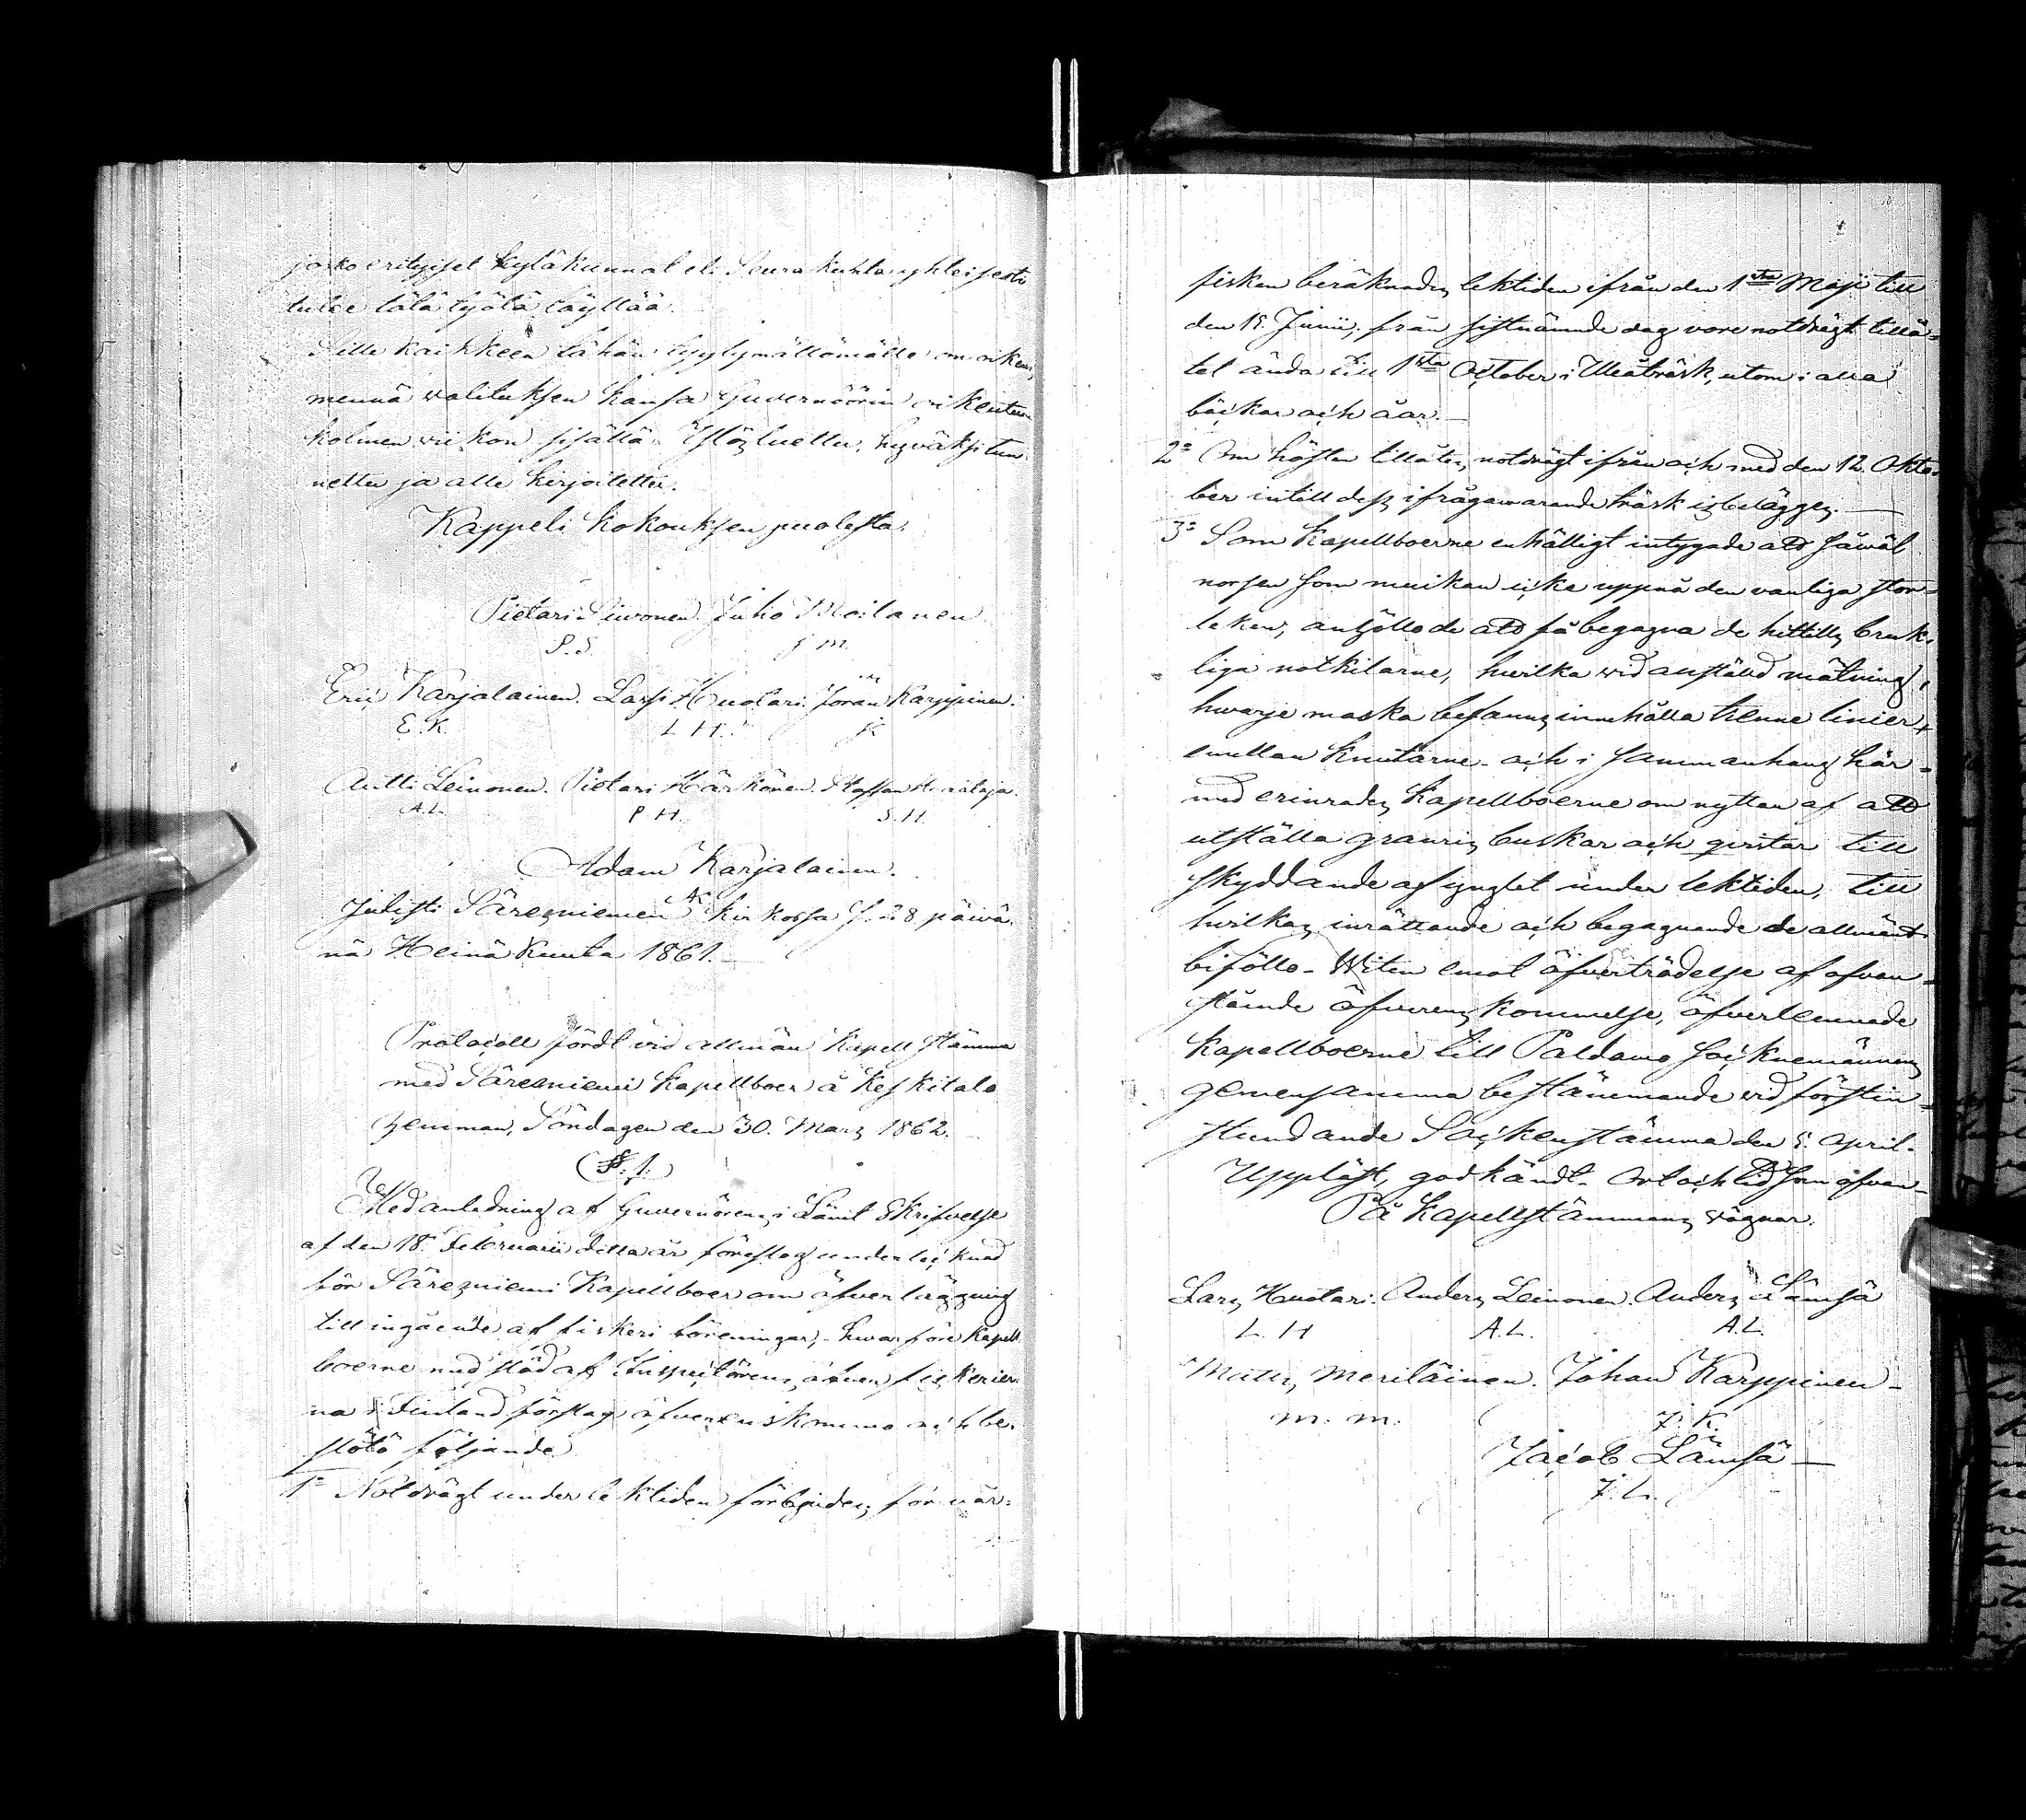 josko erityiset kyläkunnat eli Seurakunta yhteisesti
tulee tätä työtä täyttää.
Sille kaikkeen tähän tyytymättömälle on oikeus,
mennä walituksen kansa Guvernöörin oikeuteen
kolmen viikon sisällä. Ylösluettu, hyväksi tun-
nettu ja alle kirjoitettu.
Kappeli kokouksen puolesta:
Pietari Siwonen Juho Moilanen
P.S. J M.
Eric Karjalainen. Lassi Huotari. Jöran Karppinen.
E.K. L H. JK
Antti Leinonen. Pietari Härkönen. Staffan
A.L. P.H. S.H.
Adam Karjalainen.
AK
Julisti Säresniemen kirkossa s. 28 päivä-
nä Heinäkuuta 1861.
Protocoll fördt vid allmän Kapell stämma
med Säresniemi Kapellboer å Keskitalo
hemman, Söndagen den 30. Mars 1862.
(§. 1.)
Med anledning af Guvernörens i Länet Skrifvelse
af den 18. Februarii detta år föreslog undertecknad
för Säresniemi Kapellboer om öfverlägning
till ingående af fiskeri föreningar, hvarföre Kapell
boerne med stöd af Inspectörens öfver fiskerier-
na i Finland förslag öfverenskommo och be-
slöto följande
1o Notdrägt under lektiden förbjudes, för vår-
fisken beräknades lektiden ifrån den 1sta Maji till
den 15. Junii, från sistnämnde dag vore notdrägt tillå-
tet ända till 1sta October i Uleåträsk, utom i alla
bäckar och åar.
2o Om hösten tillåtes notdrägt ifrån och med den 12. Okto-
ber intill dess ifrågawarande träsk isbelägges.
3o Som Kapellboerne enhälligt intygade att såwäl
norsen som muikan icke uppnå den vanliga stor-
leken, anhöllo de att få begagna de hittills bruk-
liga notkilarne, hwilka wid anstäld mätning,
hwarje maska befanns innehålla tienne linier
emellan knutarne. och i sammanhang här-
med erinrades Kapellboerne om nyttan af att
utställa granris, buskar och qvistar till
skyddande af ynglet under lektiden, till
hwilkas inrättande och begagnande de allmänt
biföllo. Witen emot öfverträdelse af ofvan-
stående öfverenskommelse, öfverlemnade
Kapellboerne till Paldamo Sócknemännens
gemensamma bestämmande vid förstin-
stundande Sockenstämma den 5. April.
Uppläst, godkändt. Ort och tid som ofvan
På Kapellstämmans vägnar.
Lars Huotari. Anders Leinonen. Anders Lämsä
L. H A.L. A.L.
Matts Meriläinen. Johan Karppinen
M. M. J. K.
Jacob Lämsä
J. L.